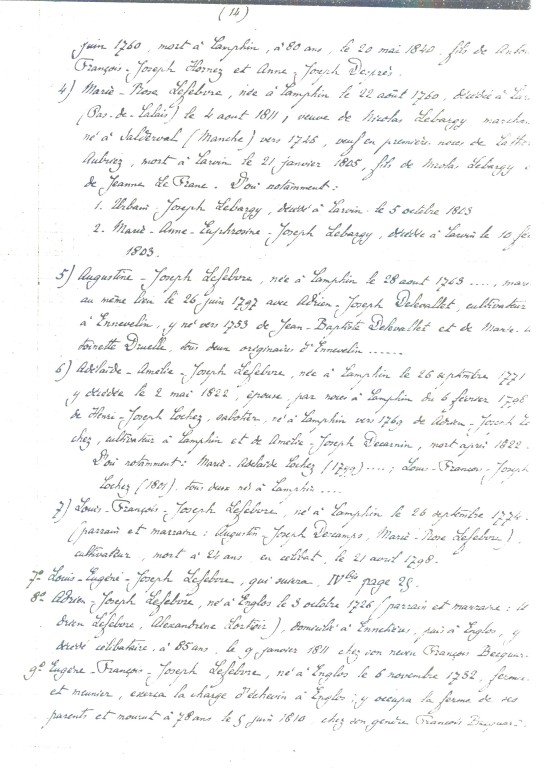 (14)
juin 1760, mort à Camphin, à 80 ans, le 20 mai 1840, fils de
François-Joseph Hornez et Anne-Joseph Desprès.
4) Marie-Rose Lefebvre, née à Camphin le 22 août 1760, décédée à
(Pas-de-Calais) le 4 août 1811, veuve de Nicolas Lebargy
né à (Manche) vers 1746, veuf en premières noces de
mort à Carvin le 21 janvier 1805, fils de Nicolas Lebargy
de Jeanne Le Franc. D'où notamment :
1. Urbain-Joseph Lebargy, décédé à Carvin le 5 octobre 1803
2. Marie-Anne-Euphrosine-Joseph Lebargy, décédée à Carvin le 10
1803.
5) Augustine-Joseph Lefebvre, née à Camphin le 28 août 1763 ....,
au même lieu le 26 juin 1797 avec Adrien-Joseph Delevallet, cultivateur
à Ennevelin, y né vers 1753 de Jean-Baptiste Delevallet et de Marie-
toinette Druelle, tous deux originaires d'Ennevelin ......
6) Adélaïde-Amélie-Joseph Lefebvre, née à Camphin le 26 septembre 1771
y décédée le 2 mai 1822, épouse, par noces à Camphin du 6 février 1798
de Henri-Joseph Lochez, sabotier, né à Camphin vers 1769 de Adrien-Joseph Lo-
chez, cultivateur à Camphin et de Amélie-Joseph Decarnin, mort après 1822.
D'où notamment : Marie-Adélaïde Lochez (1799) .... ; Louis-François-Joseph
Lochez (1801). tous deux nés à Camphin ....
7) Louis-François-Joseph Lefebvre, né à Camphin le 26 septembre 1774.
(parrain et marraine : Augustin-Joseph Descamps, Marie-Rose Lefebvre),
cultivateur, mort à 24 ans en célibat, le 21 avril 1798.
7º Louis-Eugène-Joseph Lefebvre, qui suivra IV bis page 25.
8º Adrien-Joseph Lefebvre, né à Englos le 3 octobre 1726 (parrain et marraine :
drien Lefebvre, Alexandrine ), domicilié à Ennetières, puis à Englos, y
décédé célibataire, à 85 ans, le 9 janvier 1811 chez son neveu François
9º Eugène-François-Joseph Lefebvre, né à Englos le 6 novembre 1732, fermier
et meunier, exerça la charge d'échevin à Englos ; y occupa la ferme de ses
parents et mourut à 78 ans le 5 juin 1810, chez son gendre François